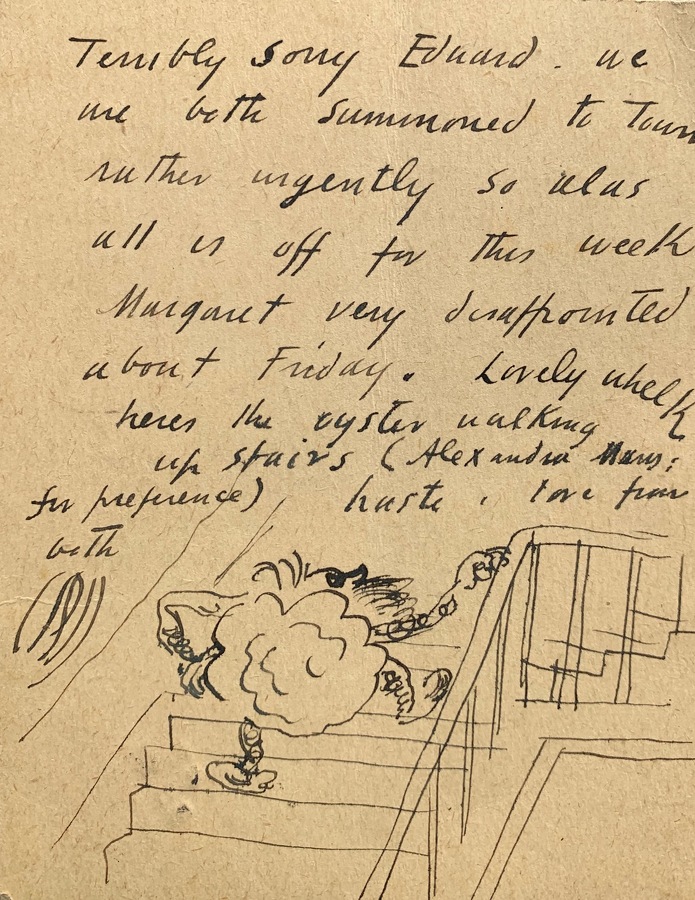 Terribly sorry Edward. we
are both summoned to Town
rather urgently so alas
all is off for this week
Margaret very disappointed
about Friday. Lovely whelk
heres the oyster walking
up stairs (Alexandra
for preference) haste. love from
both